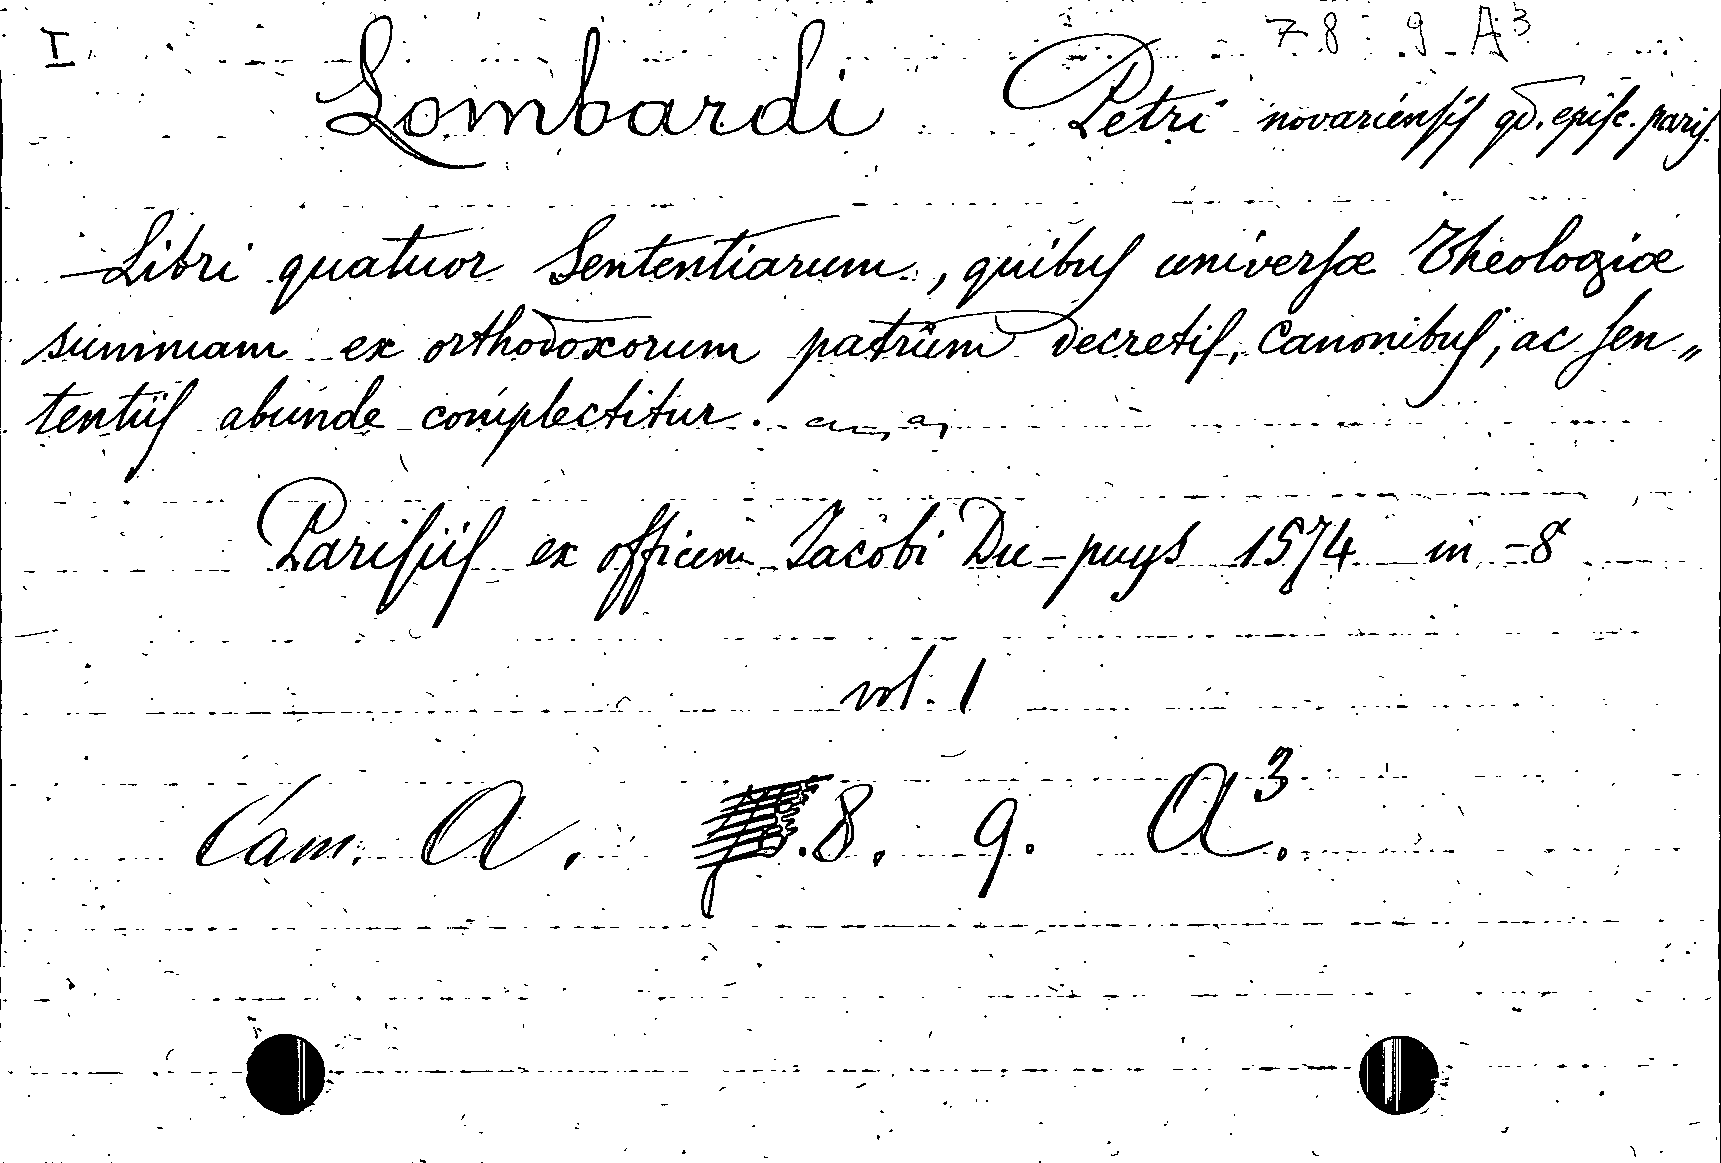 I. 7 8 9 A³
Lombardi Petri novariensis qd. episc. paris.
Libri quatuor Sententiarum, quibus universæ Theologiæ
summam ex orthodoxorum patrum decretis, canonibus, ac sen„
tentiis abunde complectitur.
Parisiis ex officin Jacobi Du-puys 1574 in-8
vol. 1
Cam. A. .8. 9. A³.